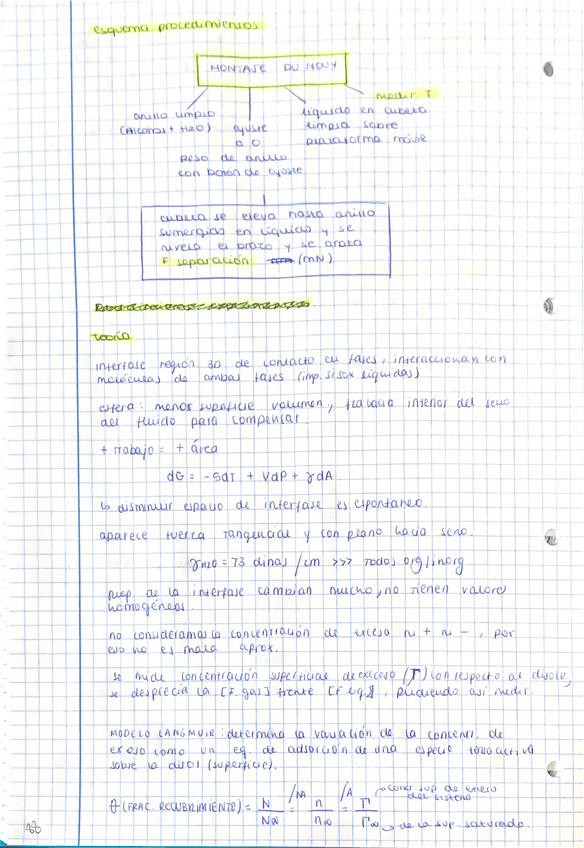 esquema procedimientos
MONTAJE DU NOUY
medir T
anillo limpio
(Alcohol + H2O)
ajuste
a 0
peso de anillo
con boton de ajuste
líquido en cubeta
limpia sobre
plataforma móvil
cubeta se eleva hasta anillo
sumergido en líquido y se
nivela el brazo y se anota
F separación (mN)
teoría
interfase región 3D de contacto en fases, interaccionan con
moléculas de ambas fases (imp. si sox líquidas)
esfera: menor superficie volumen, hacia interior del seno
del fluido para compensar.
+ trabajo = + área
dG = -SdT + VdP + γdA
↳ disminuir espacio de interfase es espontaneo.
aparece fuerza tangencial y con plano hacia seno.
γH2O = 73 dinas/cm >>> todos org/inorg
prop de la interfase cambian mucho, no tienen valores
homogéneos.
no consideramos la concentración de exceso n + n -, por
eso no es mala aprox.
se mide concentración superficial de exceso (Γ) con respecto al disolv,
se desprecia la [F. gas] frente [F líq.], pudiendo así medir.
MODELO LANGMUIR: determina la variación de la concentr. de
exceso como un eq. de adsorción de una especie tensoactiva
sobre la disol (superficie).
θ (FRAC. RECUBRIMIENTO) = N/N∞ = /NA n/n∞ = /A Γ/Γ∞
→ concr sup de exceso
del sistema
→ de la sup saturada.